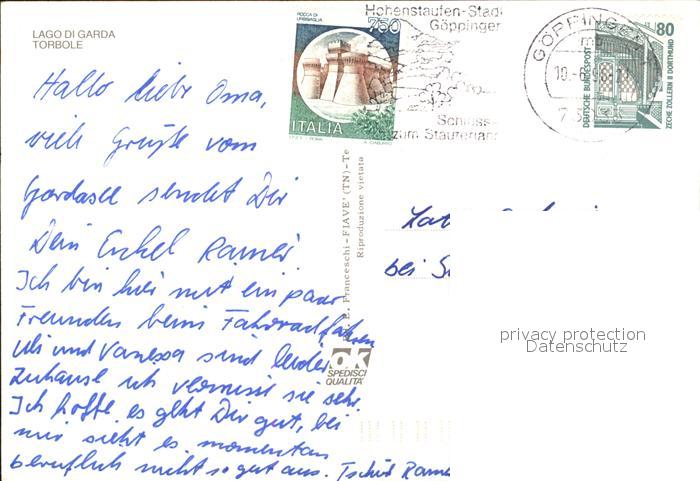 LAGO DI GARDA
TORBOLE
ROCCA DI
URBISAGLIA
750
ITALIA
Hohenstaufen-Stadt
Göppingen
Schlüssel
zum Stauferland
GÖPPINGEN
80
DEUTSCHE BUNDESPOST
ZECHE ZOLLERN II DORTMUND
Hallo liebe Oma,
viele Grüße vom
Gardasee sendet Dir
Dein Enkel Rainer
Ich bin hier mit ein paar
Freunden beim Fahrradfahren
Uli und Vanessa sind leider
Zuhause ich vermisse sie sehr.
Ich hoffe es geht Dir gut, bei
mir sieht es momentan
beruflich nicht so gut aus. Tschüß Rainer
Franceschi-FIAVE' (TN)-Te
Riproduzione vietata
bei
ok
SPEDISCI
QUALITA'
privacy protection
Datenschutz